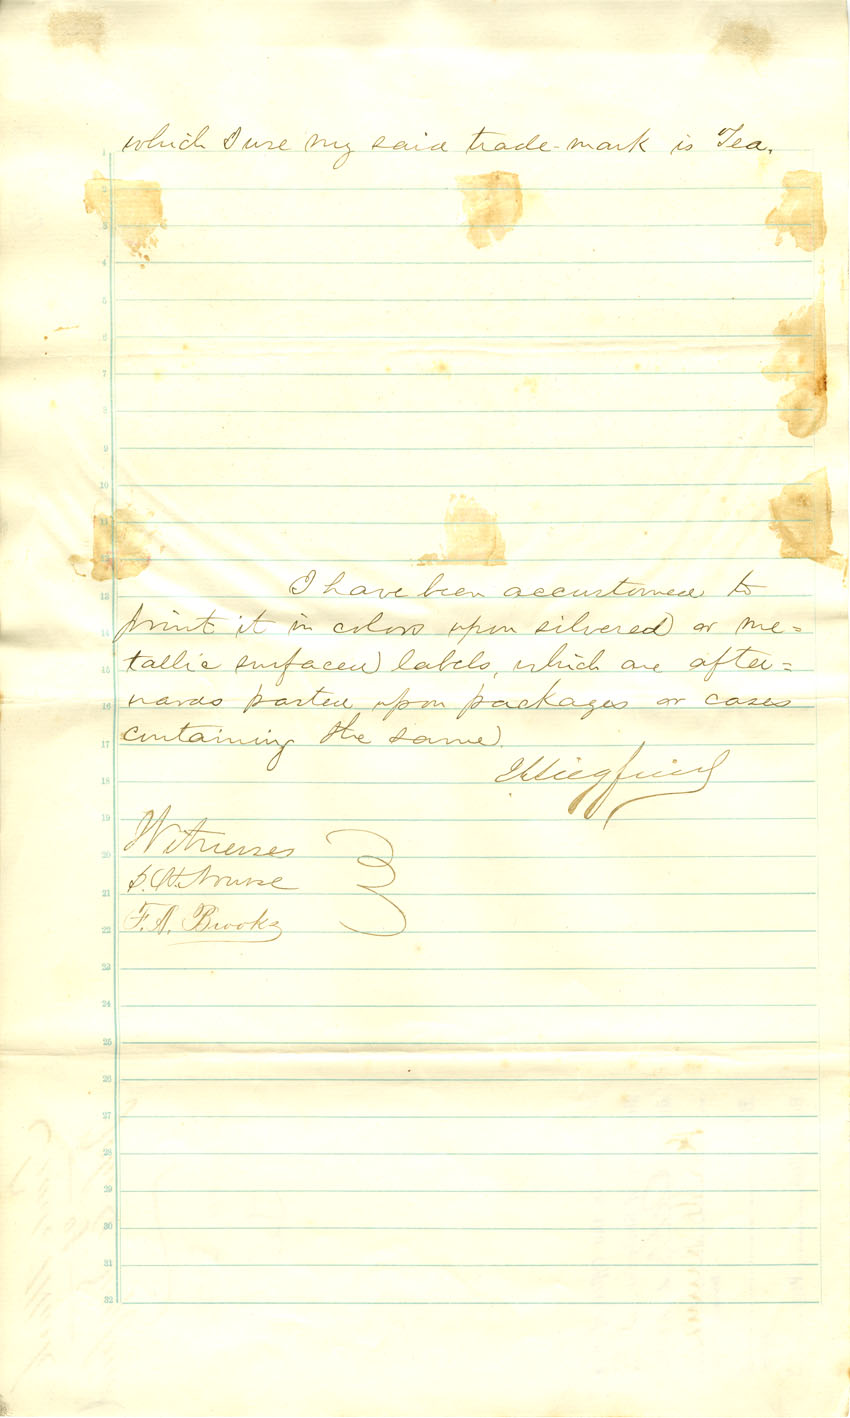 which I use my said trade-mark is Tea.
1
2
3
4
5
6
7
8
9
10
11
12
I have been accustomed to
13
print it in colors upon silvered or me=
14
tallic surfaced labels, which are after=
15
wards pasted upon packages or cases
16
containing the same.
17
Siegfried
18
19
Witnesses
20
Nourse
21
F. A. Brooks
22
23
24
25
26
27
28
29
30
31
32